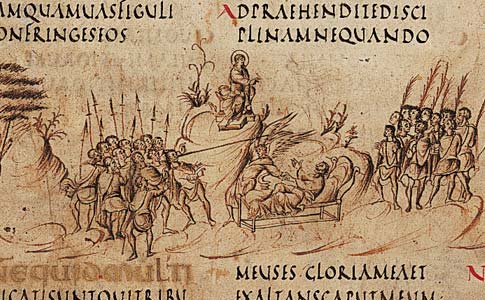 AMQUAMUASFIGULI
ONFRINGESEOS
ADPRAEHENDITEDISCI
PLINAMNEQUANDO
NEQUIDMULTI
ICATISUNTQUITRIBU
MEUSES GLORIAMEAET
EXALTANSCAPUTMEUM
N